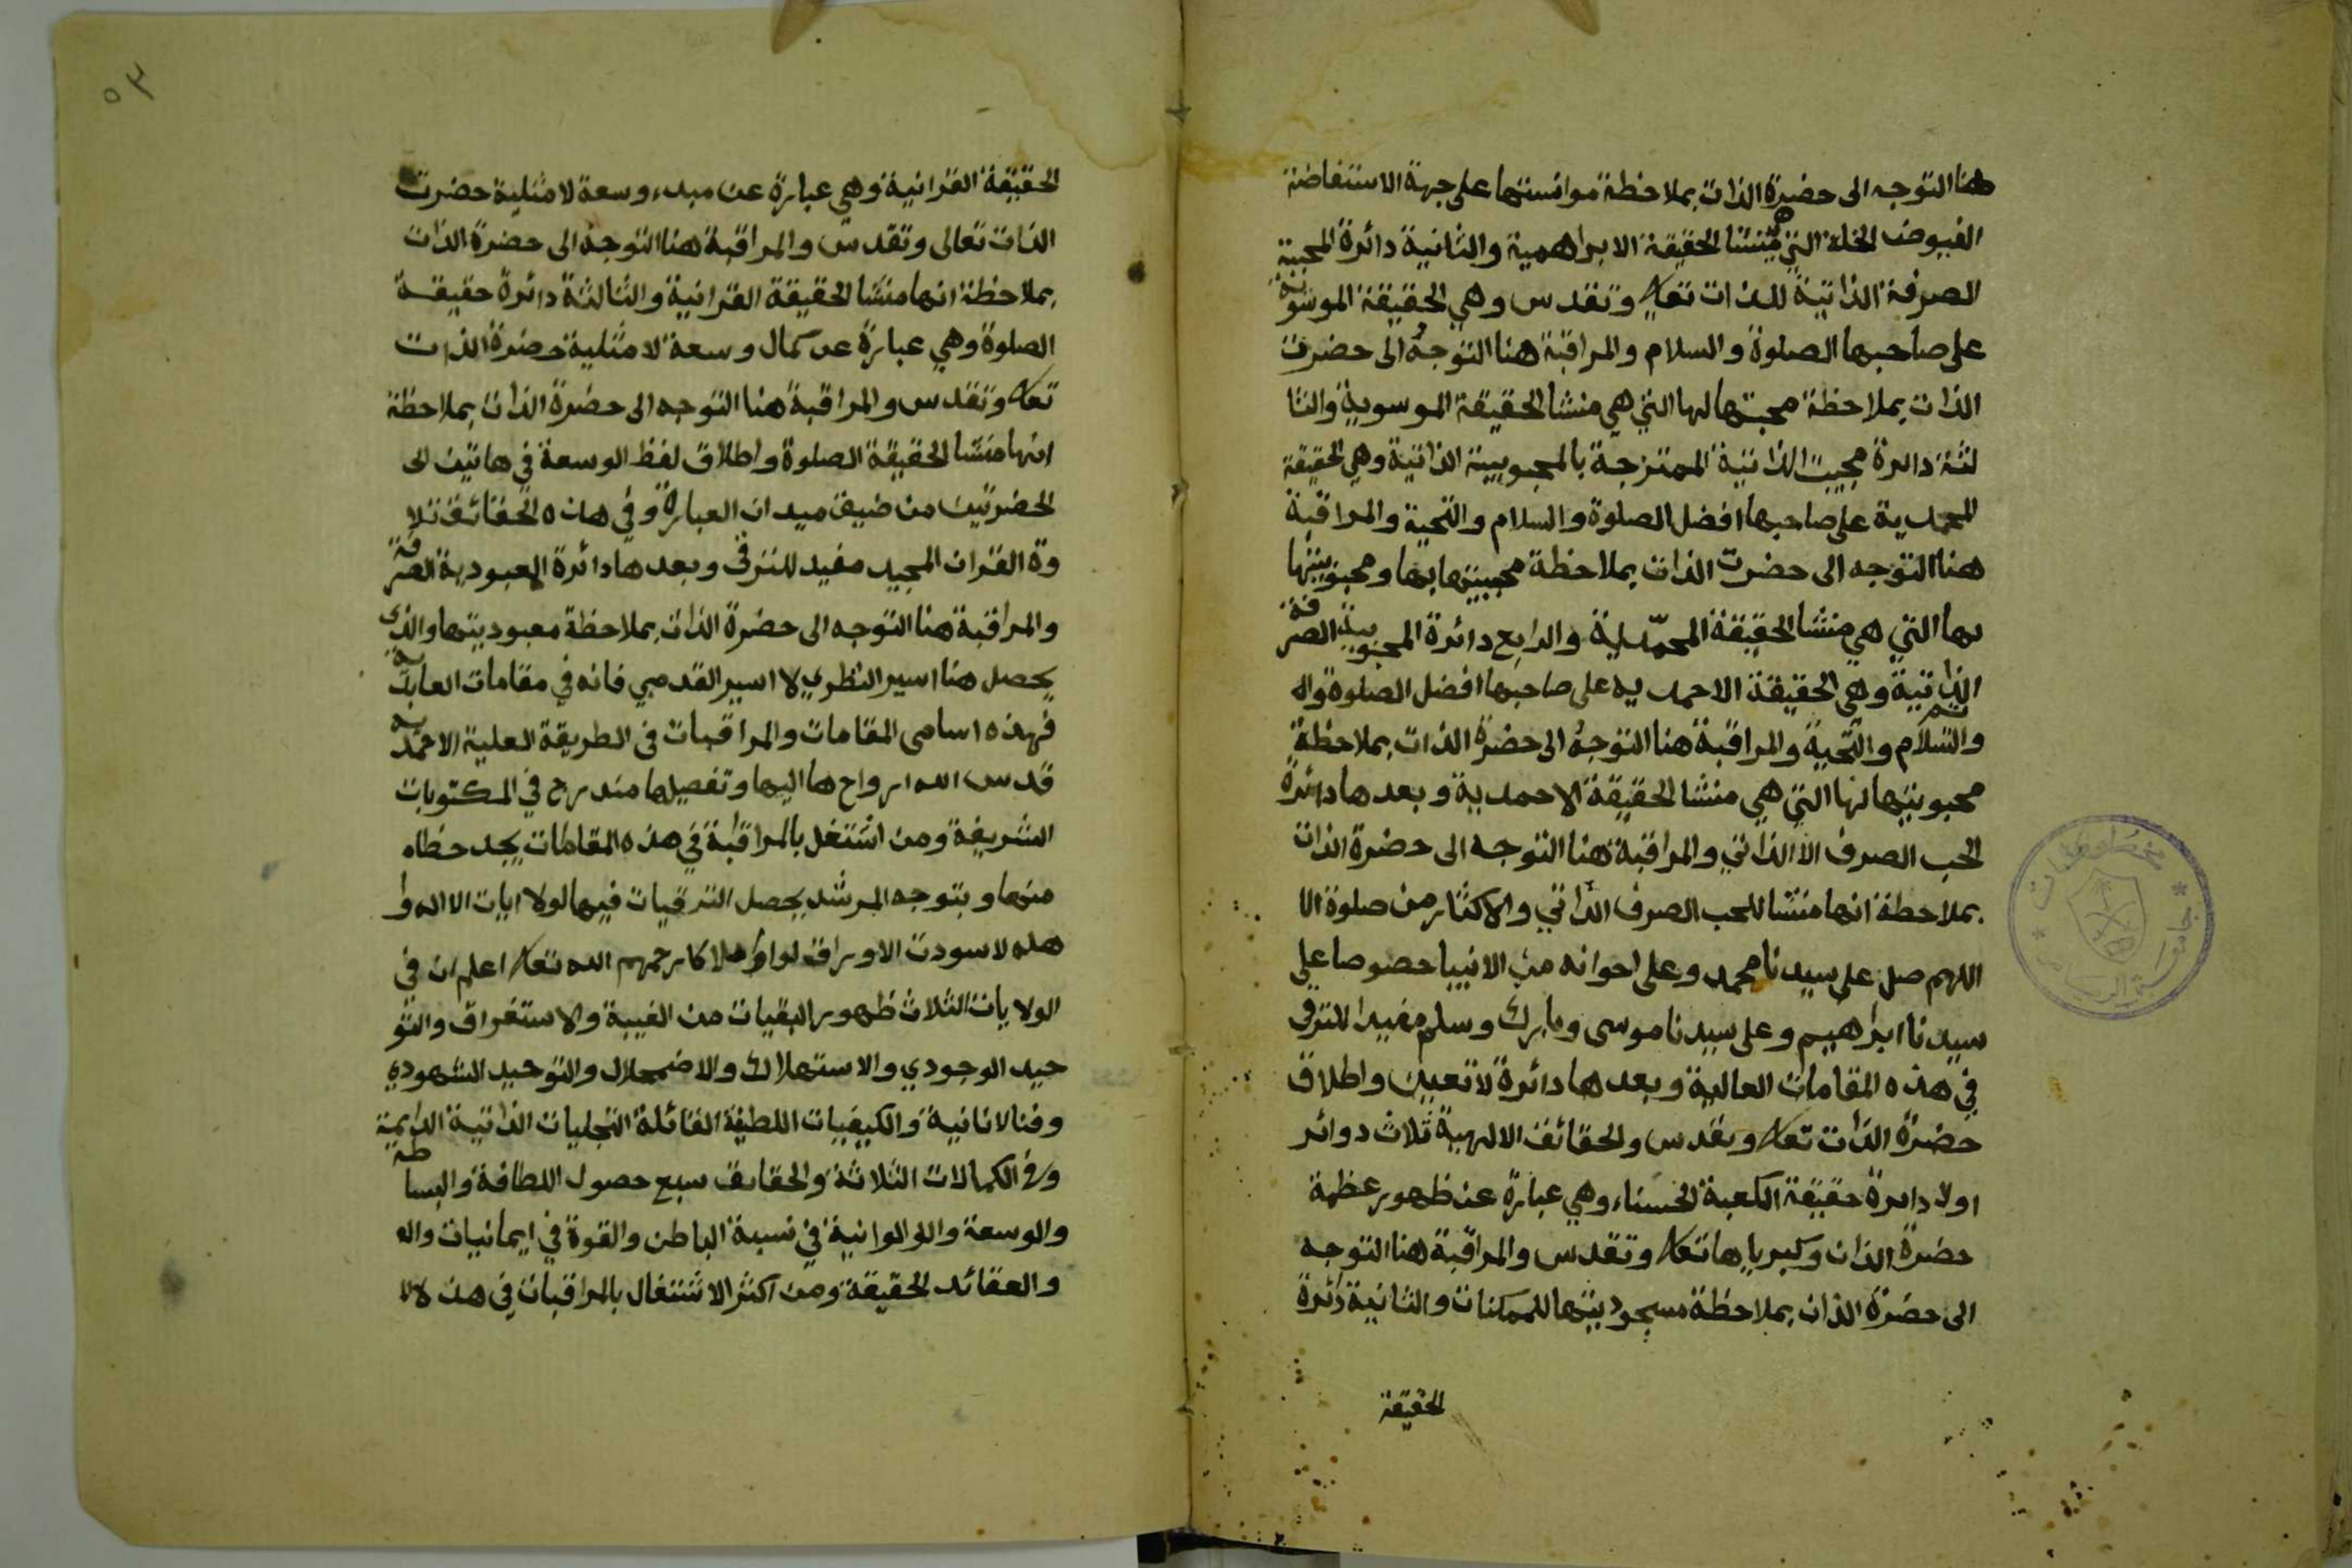 هنا التوجه الى حضرة الذات بملاحظة موانستها على جهة الاستفاضة
الفيوض الخلة التي هي منشا الحقيقة الابراهمية والثانية دائرة المحبية
الصرفة الذاتية للذات تعالى وتقدس وهي الحقيقة الموسوية
على صاحبها الصلوة والسلام والمراقبة هنا التوجه الى حضرت
الذات بملاحظة محبتها لها التي هي منشا الحقيقة الموسوية والثا
لثة دائرة محبيت الذاتية الممتزجة بالمحبوبية الذاتية وهي الحقيقة
المحمدية على صاحبها افضل الصلوة والسلام والتحية والمراقبة
هنا التوجه الى حضرت الذات بملاحظة محبيتها بها ومحبوبيتها
بها التي هي منشا الحقيقة المحمّدية والرابع دائرة المحبوبية الصرفة
الذاتية وهي الحقيقة الاحمديه على صاحبها افضل الصلوة وال
والسلام والتحية والمراقبة هنا التوجه الى حضرة الذات بملاحظة
محبوبيتها لها التي هي منشا الحقيقة الاحمدية وبعدها دائرة
الحب الصرف الا الذاتي والمراقبة هنا التوجه الى حضرة الذات
بملاحظة انها منشا للحب الصرف الذاتي والاكثار من صلوة الا
اللهم صل على سيدنا محمد وعلى اخوانه من الانبيا خصوصا على
سيدنا ابراهيم وعلى سيدنا موسى وبارك وسلم مفيدا للترقي
في هذه المقامات العالية وبعدها دائرة لا تعيين واطلاق
حضرة الذات تعالى وتقدس والحقائق الالهية ثلاث دوائر
اولا دايرة حقيقة الكعبة الحسناء وهي عبارة عن ظهور عظمة
حضرة الذات وكبرياها تعالى وتقدس والمراقبة هنا التوجه
الى حضرة الذات بملاحظة مسجوديتها للممكنات والثانية دائرة
الحقيقة
٥٣
الحقيقة القرانية وهي عبارة عن مبدء وسعة لا مثلية حضرت
الذات تعالى وتقدس والمراقبة هنا التوجه الى حضرة الذات
بملاحظة انها منشا الحقيقة القرانية والثالثة دائرة حقيقة
الصلوة وهي عبارة عن كمال وسعة لا مثلية حضرة الذات
تعالى وتقدس والمراقبة هنا التوجه الى حضرة الذات بملاحظة
انها منشا الحقيقة الصلوة واطلاق لفظ الوسعة في هاتين الى
الحضرتين من ضيق ميدان العبارة وفي هذه الحقائق تلا
وة القران المجيد مفيد للترقي وبعدها دائرة المعبودية الصرفة
والمراقبة هنا التوجه الى حضرة الذات بملاحظة معبوديتها والذي
يحصل هنا اسير النظري لا اسير القدمي فانه في مقامات العابدية
فهذه اسامى المقامات والمراقبات في الطريقة العلية الاحمدية
قدس الله ارواح هاليها وتفصيلها مندرج في المكتوبات
الشريفة ومن اشتغل بالمراقبة في هذه المقامات يجد حظاه
منها وبتوجه المرشد يحصل الترقيات فيها لولا ايات الا اله وا
هله لاسودت الاوراق رحمهم الله تعالى اعلم ان في
الولايات الثلاث ظهور البقيات من الغيبة والاستغراق والتو
حيد الوجودي والاستهلاك والاضمحلال والتوحيد الشهودي
وفنا الانانية والكيفيات اللطيفة التجليات الذاتية الدايمية
وفي الكمالات الثلاثة والحقايق سبع حصول اللطافة والبساطة
والوسعة في نسبة الباطن والقوة في ايمانيات وال
والعقائد الحقيقة ومن اكثر الاشتغال بالمراقبات في هذه الا